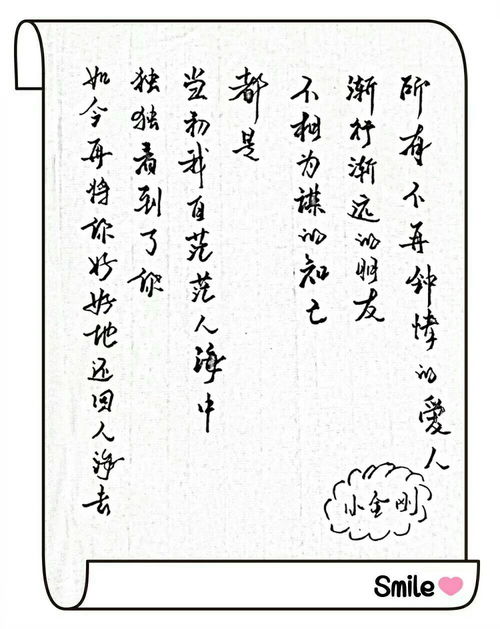 所有不再钟情的愛人
渐行渐远的朋友
不相为谋的知己
都是
当初我自茫茫人海中
独独看到了你
如今再将你好好地还回人海去
小金刚
Smile